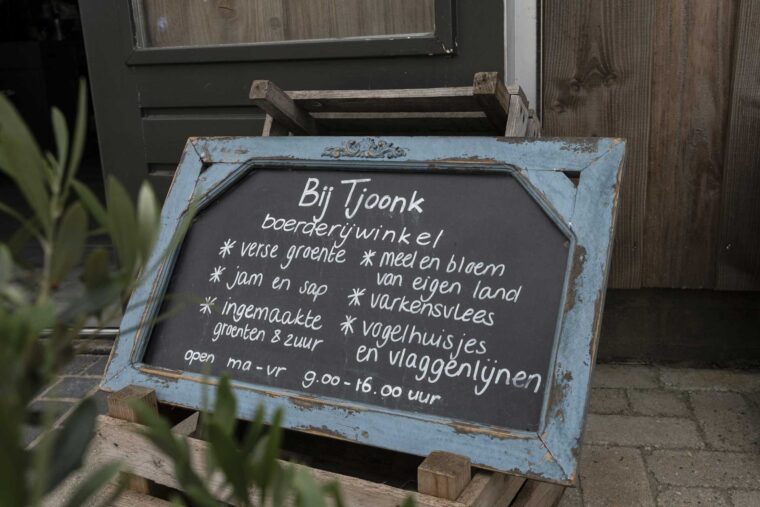 Bij Tjoonk
boerderijwinkel
* verse groente
* jam en sap
* ingemaakte
groenten & zuur
* meel en bloem
van eigen land
* varkensvlees
* vogelhuisjes
en vlaggenlijnen
open ma-vr 9.00-16.00 uur